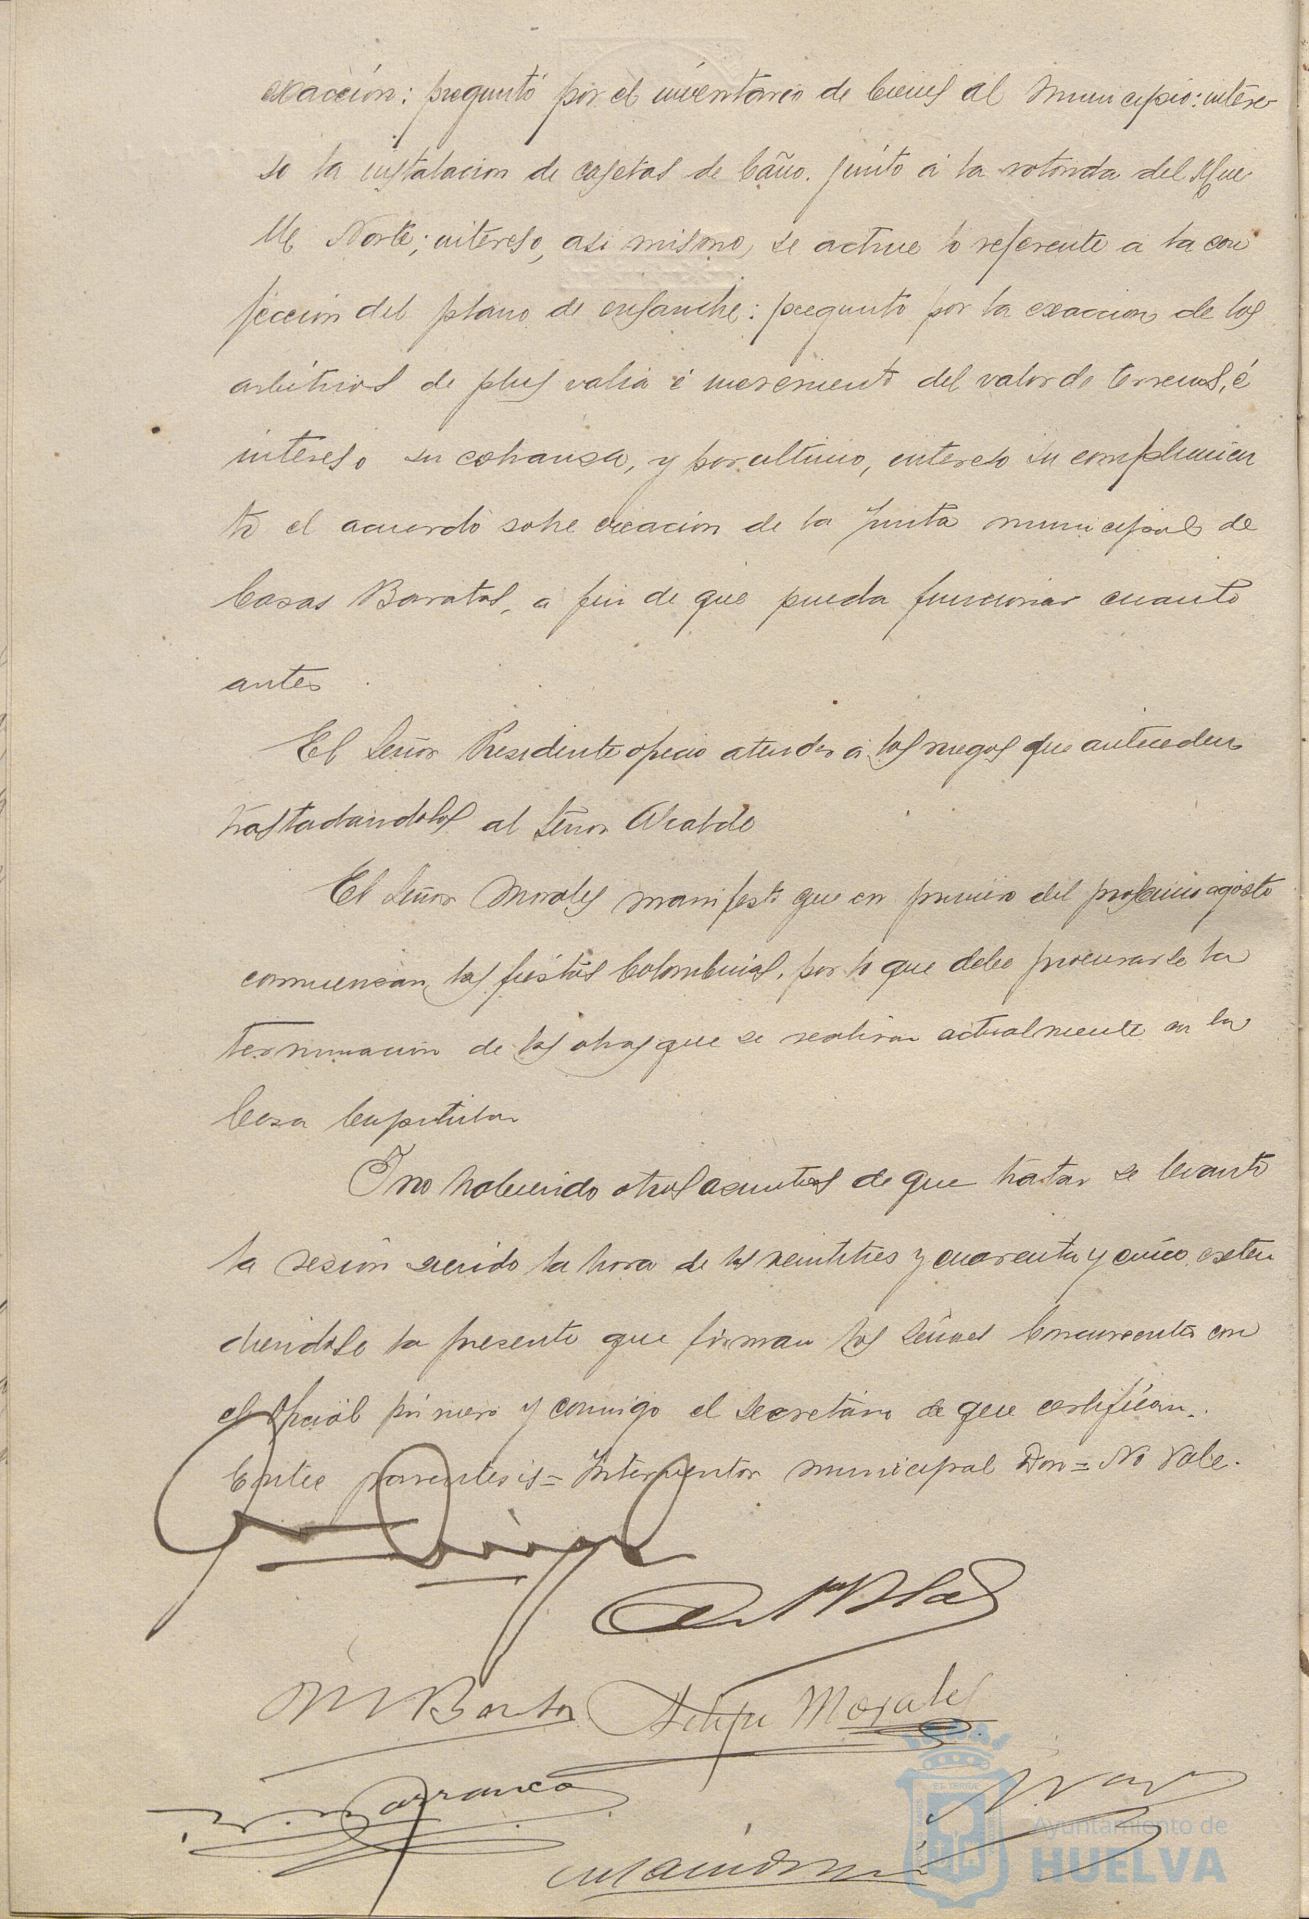 exacción: preguntó por el inventario de bienes al Municipio: intere-
so la instalacion de casetas de baño junto á la rotonda del Mue-
lle Norte; intereso, asi mismo, se active lo referente a la con
feccion del plano de ensanche: pregunto por la exaccion de los
arbitrios de plus valia é incremento del valor de terrenos, é
intereso su cobranza, y por ultimo, intereso su cumplimien
to el acuerdo sobre creacion de la Junta municipal de
Casas Baratas, a fin de que pueda funcionar cuanto
antes
El Señor Presidente ofrecio atender á los ruegos que anteceden
trasladandolos al Señor Alcalde
El Señor Morales manifesto que en primero del proximo agosto
comienzan las fiestas Colombinas, por lo que debe procurarse la
terminacion de las obras que se realizan actualmente en la
Casa Capitular
Y no habiendo otros asuntos de que tratar se levanto
la sesión siendo la hora de las veintitres y cuarenta y cinco, exten
diendose la presente que firman los señores Concurrentes con
el Oficial primero y conmigo el secretario de que certifican.
Entre parentesis = Interventor municipal Don = No Vale.
Felipe Morales
Ayuntamiento de
HUELVA